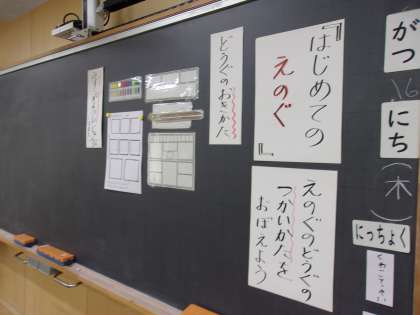 がつ
16
にち
(木)
にっちょく
『はじめての
えのぐ』
えのぐのどうぐの
つかいかたを
おぼえよう
どうぐのおきかた